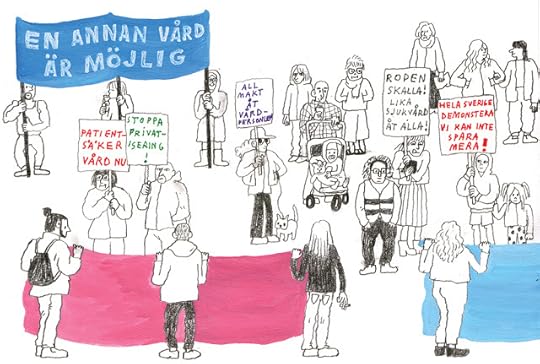 EN ANNAN VÅRD
ÄR MÖJLIG
PATIENT-
SÄKER
VÅRD NU
STOPPA
PRIVAT-
ISERING
!
ALL
MAKT
ÅT
VÅRD-
PERSONALEN
ROPEN
SKALLA!
LIKA
SJUKVÅRD
ÅT ALLA!
HELA SVERIGE
DEMONSTERA
VI KAN INTE
SPARA
MERA!